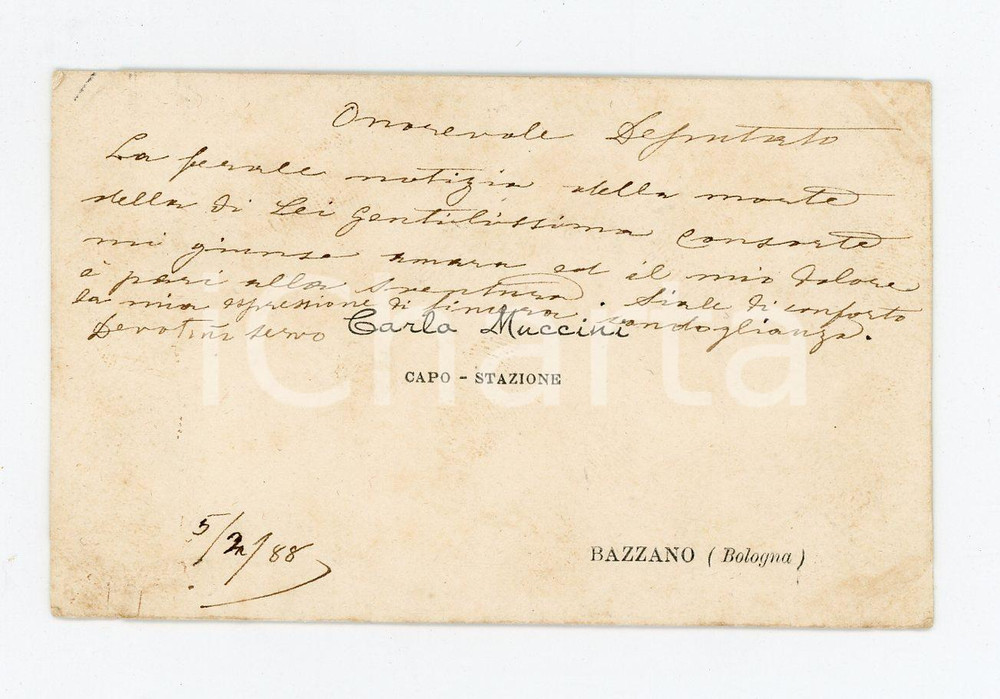 Onorevole Deputato
La ferale notizia della morte
della di Lei gentilissima consorte
mi giunse amara ed il mio dolore
è pari alla sventura. Siale di conforto
la mia espressione di sincera condoglianza.
Devot.mo servo Carlo Muccini
CAPO - STAZIONE
5/2/88
BAZZANO (Bologna)
iCharta